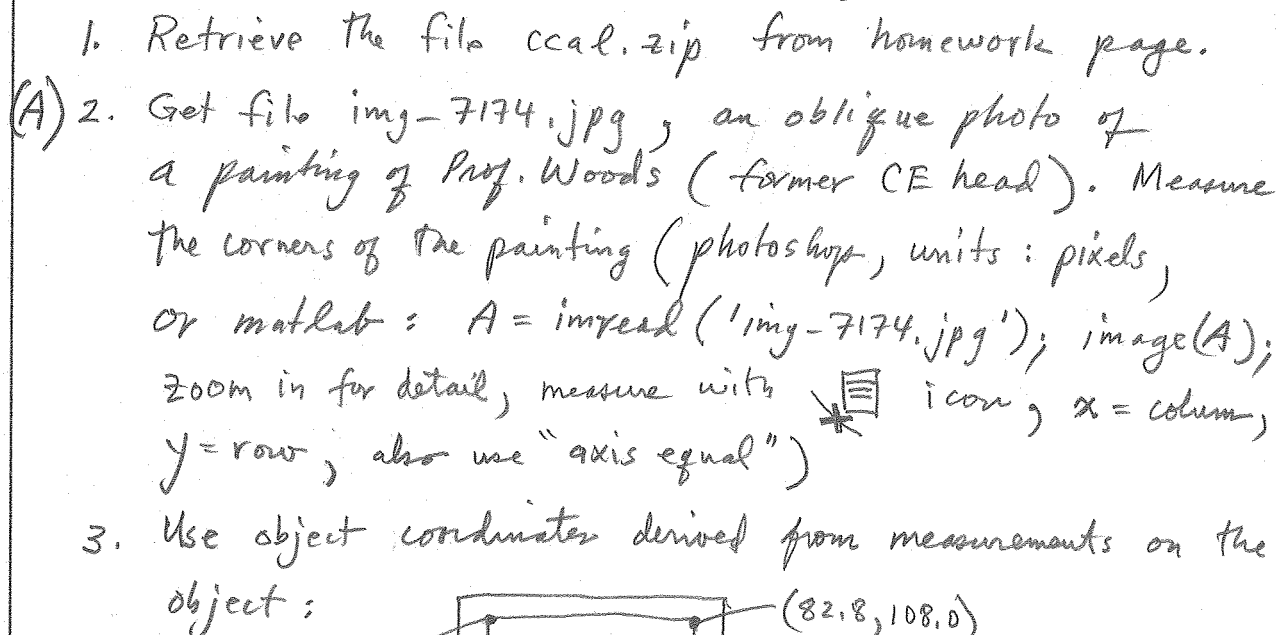 1. Retrieve the file ccal.zip from homework page.
(A) 2. Get file img-7174.jpg, an oblique photo of
a painting of Prof. Woods (former CE head). Measure
the corners of the painting (photoshop, units: pixels,
or matlab: A = imread('img-7174.jpg'); image(A);
zoom in for detail, measure with icon, x = colum,
y = row, also use "axis equal")
3. Use object coordinates derived from measurements on the
object:
(82.8, 108.0)